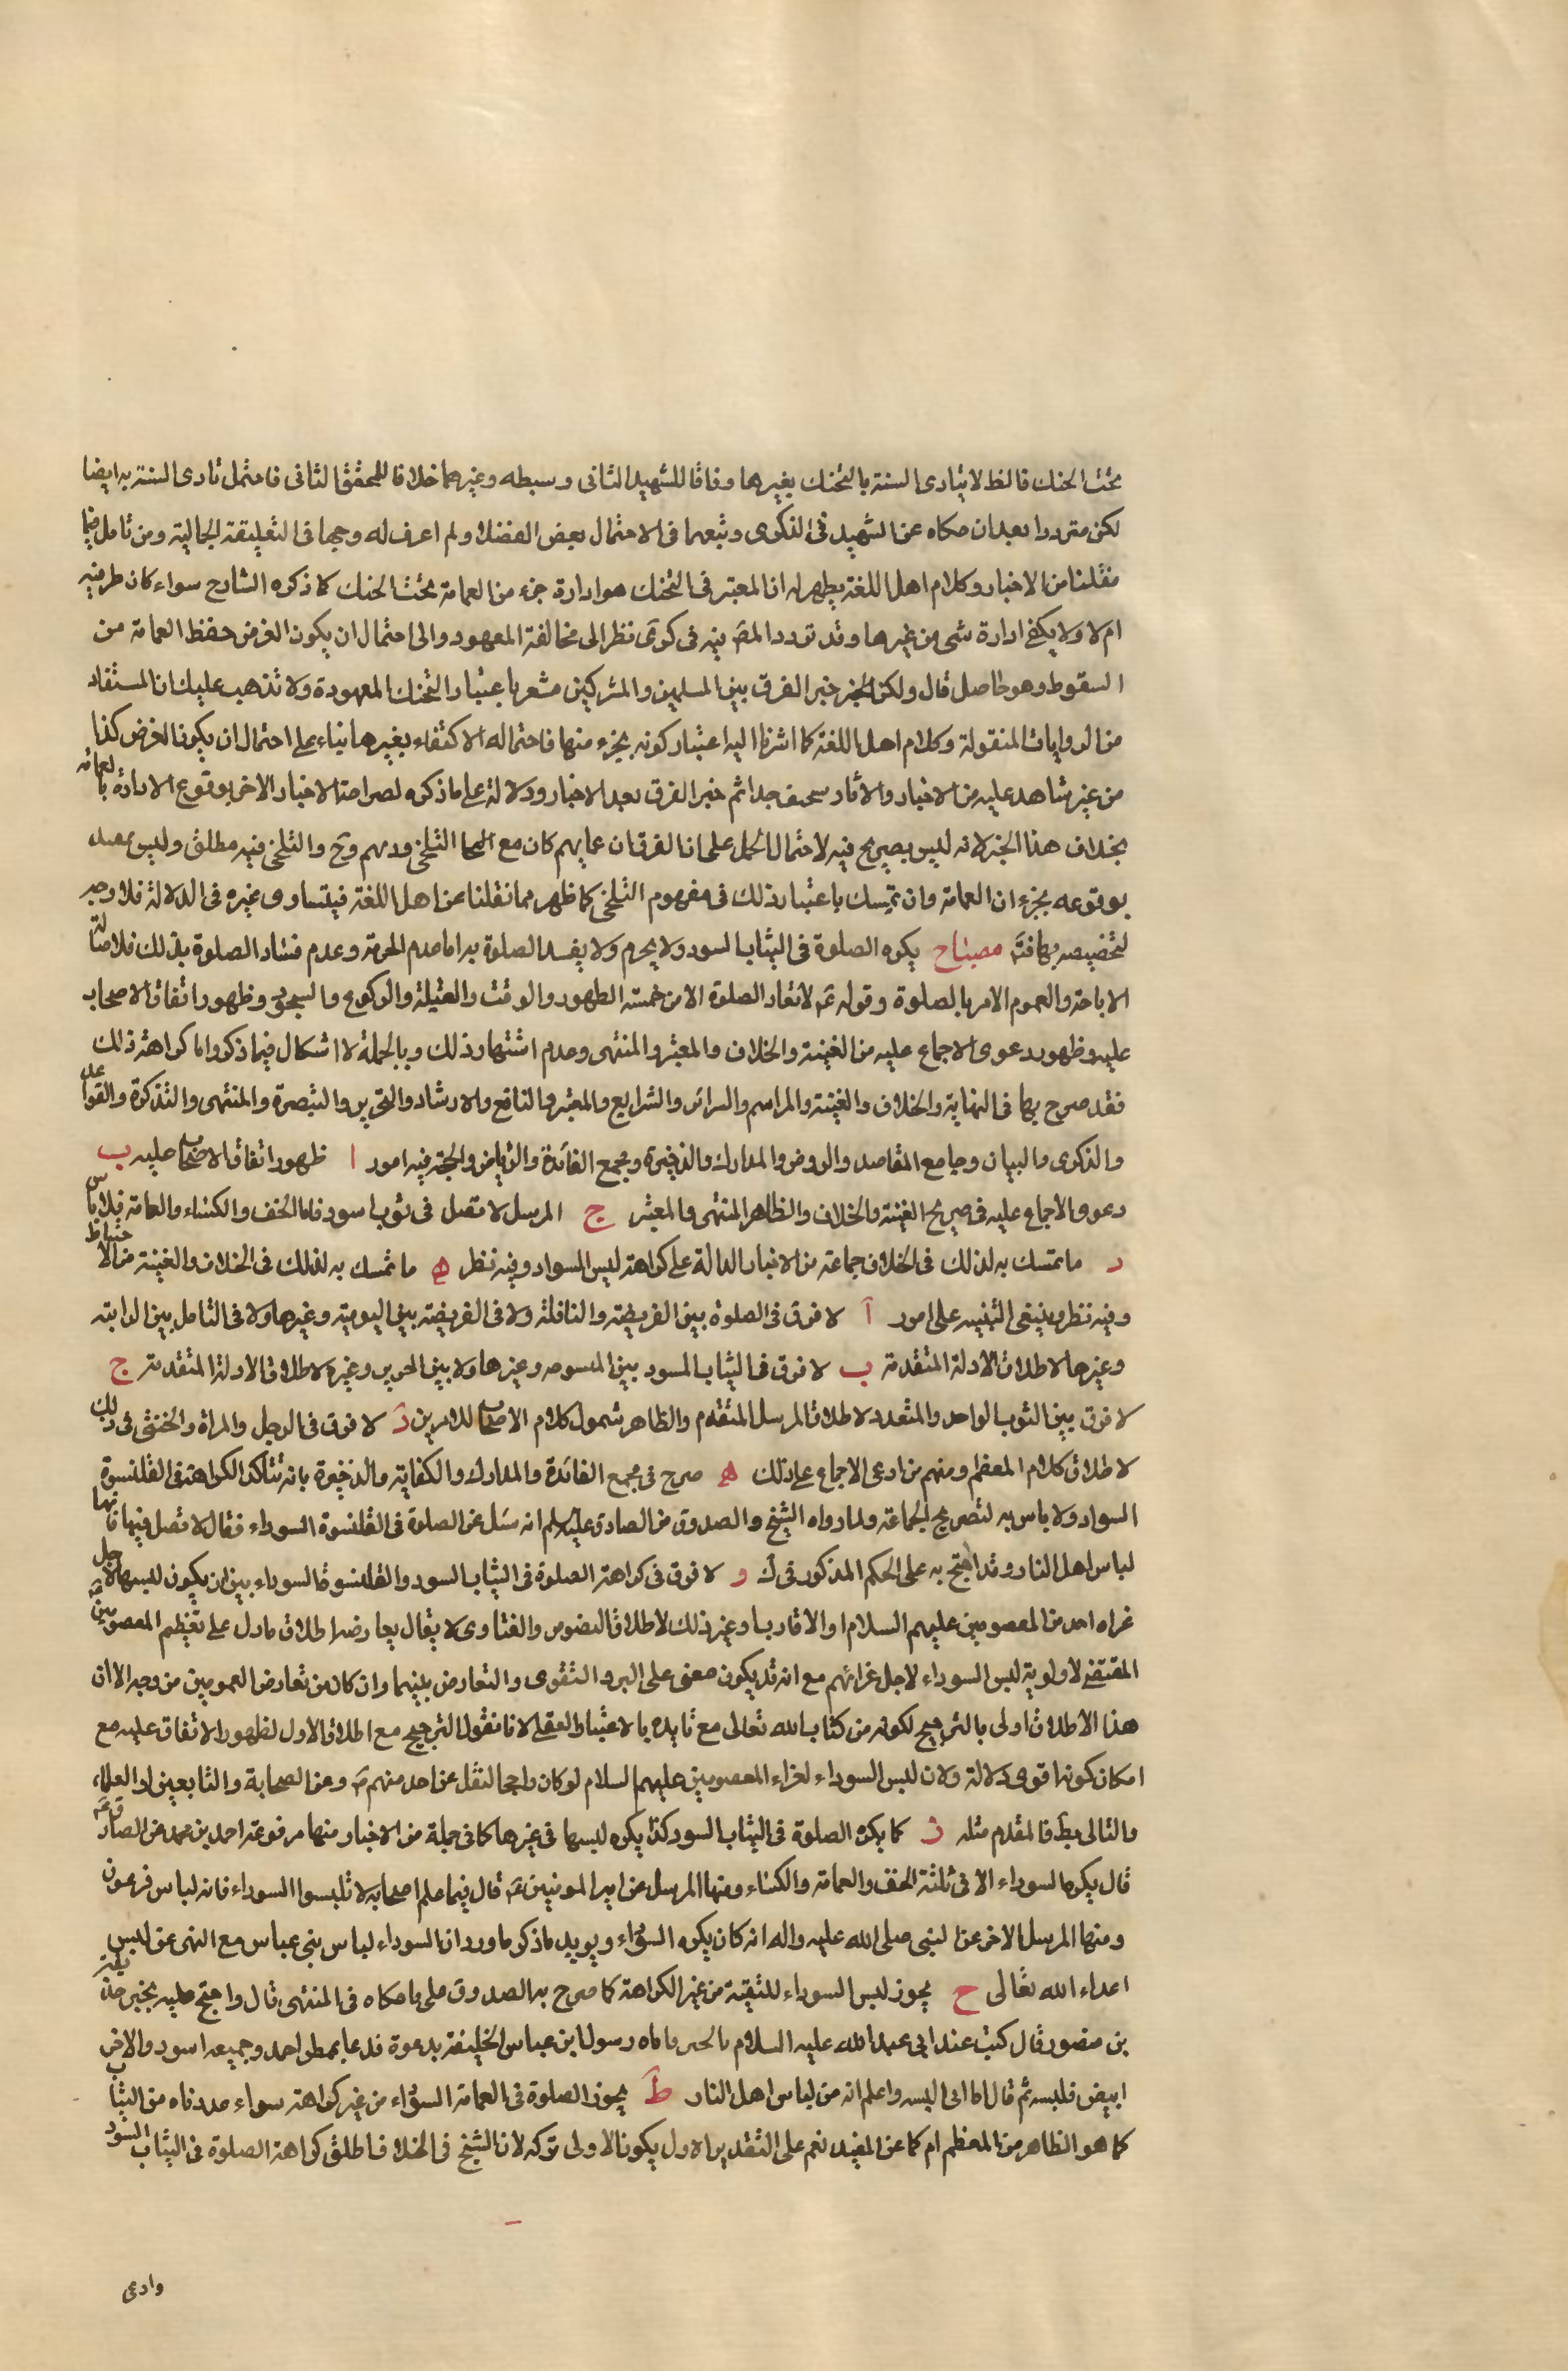 تحت الحنك فالظ لا يتادى السنة بالتحنك بغيرها وفاقا للشهيد الثانى وسبطه وغيرهما خلافا للمحقق الثانى فاحتمل تادى السنة به ايضا
لكن مترددا بعد ان حكاه عن الشهيد فى الذكرى وتبعهما فى الاحتمال بعض الفضلاء ولم اعرف له وجها فى التعليقة الجمالية ومن تامل فيما
نقلنا من الاخبار وكلام اهل اللغة يظهر له ان المعتبر فى التحنك هو ادارة جزء من العمامة تحت الحنك كما ذكره الشارح سواء كان طرفيه
ام لا ولا يكفى ادارة شى من غيرها وقد تردد المص فيه فى كرى نظرا الى مخالفة المعهود والى احتمال ان يكون الغرض حفظ العمامة من
السقوط وهو حاصل قال ولكن خبر الفرق بين المسلمين والمشركين مشعر باعتبار التحنك المعهودة ولا تذهب عليك ان المستفاد
من الروايات المنقولة وكلام اهل اللغة كما اشرنا اليه اعتبار كونه بجزء منها فاحتماله الاكتفاء بغيرها بناء على احتمال ان يكون الغرض كذا
من غير شاهد عليه من الاخبار والاثار سخيف جدا ثم خبر الفرق بعيد الاخبار ودلالة على ما ذكره لصراحة الاخبار الاخر بوقوع الادارة بالعمامة
بخلاف هذا الخبر لانه ليس بصريح فيه لاحتمال الحمل على ان الفرقان عمايهم كان مع التلحى ودبهم وح والتلحى فيه مطلق وليس مقيد
بوقوعه بجزء ان العمامة وان تمسك باعتبار ذلك فى مفهوم التلحى كما ظهر مما نقلنا عن اهل اللغة فيتساوى غيره فى الدلالة فلا وجه
لتخصيصه بها فته مصباح يكره الصلوة فى الثياب السود ولا يحرم ولا يفسد الصلوة به اما عدم الحرمة وعدم فساد الصلوة بذلك فلاصالة
الاباحة والعموم الامر بالصلوة وقوله ع لا تعاد الصلوة الا من خمسة الطهور والوقت والقبلة والركوع والسجود وظهور اتفاق الاصحاب
عليه وظهور دعوى الاجماع عليه من الغنية والخلاف والمعتبر والمنتهى وعدم اشتهار ذلك وبالجملة لا اشكال فيما ذكر واما كراهة ذلك
فقد صرح بها فى النهاية والخلاف والغنية والمراسم والسرائر والشرايع والمعتبر والنافع والارشاد والتحرير والتبصرة والمنتهى والتذكرة والقواعد
والذكرى والبيان وجامع المقاصد والروض والمدارك والذخيرة ومجمع الفائدة والرياض والحجة فيه امور ا ظهور اتفاق الاصحاب عليه ب
دعوى الاجماع عليه فى صريح الغنية والخلاف والظاهر المنتهى والمعتبر ج المرسل لا تصل فى ثوب اسود فاما الخف والكساء والعمامة فلا باس
د ما تمسك به لذلك فى الخلاف جماعة من الاخبار الدالة على كراهة لبس السواد وفيه نظر ه ما تمسك به لذلك فى الخلاف والغنية من الاحتياط
وفيه نظر وينبغى التنبيه على امور آ لا فرق فى الصلوة بين الفريضة والنافلة ولا فى الفريضة بين اليومية وغيرها ولا فى النافلة بين الراتبة
وغيرها لاطلاق الادلة المتقدمة ب لا فرق فى الثياب السود بين المنسوجه وغيرها ولا بين الحرير وغيره لاطلاق الادلة المتقدمة ج
لا فرق بين الثوب الواحد والمتعدد لاطلاق المرسل المتقدم والظاهر شمول كلام الاصحاب للامرين د لا فرق فى الرجل والمراة والخنثى فى ذلك
لاطلاق كلام المعظم ومنهم من ادعى الاجماع على ذلك ه صرح فى مجمع الفائدة والمدارك والكفاية والذخيرة بانه تتاكد الكراهة فى القلنسوة
السواد ولا باس به لتصريح الجماعة ولما رواه الشيخ والصدوق عن الصادق عليه السلم انه سئل عن الصلوة فى القلنسوة السوداء فقال لا تصل فيها فانها
لباس اهل النار وقد احتج به على الحكم المذكور فى ك و لا فرق فى كراهة الصلوة فى الثياب السود والقلنسوة السوداء بين ان يكون لبسها لاجل
عزاء احد من المعصومين عليهم السلام او الاقارب او غير ذلك لاطلاق النصوص والفتاوى لا يقال يعارضه اطلاق ما دل على تعظيم المعصومين ع
المقتضى لاولوية لبس السوداء لاجل عزائهم مع انه قد يكون معنى على البر والتقوى والتعارض بينهما وان كان من تعارض العمومين من وجه الا ان
هذا الاطلاق اولى بالترجيح لكونه من كتاب الله تعالى مع تايده بالاعتبار العقلى لانا نقول الترجيح مع اطلاق الاول لظهور الاتفاق عليه مع
امكان كونها اقوى دلالة ولان لبس السوداء لعزاء المعصومين عليهم السلام لو كان راجحا لنقل عن احد منهم ع وعن الصحابة والتابعين او العلماء
والتالى بط فالمقدم مثله ز كما يكره الصلوة فى الثياب السود كذا يكره لبسها فى غيرها كما فى جملة من الاخبار منها مرفوعة احمد بن محمد عن الصادق ع
قال يكره السوداء الا فى ثلثة الخف والعمامة والكساء ومنها المرسل عن امير المومنين ع قال فيما علم اصحابه لا تلبسوا السوداء فانه لباس فرعون
ومنها المرسل الاخر عن النبى صلى الله عليه واله انه كان يكره السوداء ويويد ما ذكر ما ورد ان السوداء لباس بنى عباس مع النهى عن لبس
اعداء الله تعالى ح يجوز لبس السوداء للتقية من غير الكراهة كما صرح به الصدوق على ما حكاه فى المنتهى قال واحتج عليه بخبر حذيفة
بن منصور قال كنت عند ابى عبد الله عليه السلام بالحيرة فاتاه رسول ابن عباس الخليفة يدعوه فدعا بممطر احد وجهيه اسود والاخر
ابيض فلبسه ثم قال اما انى البسه واعلم انه من لباس اهل النار ط يجوز الصلوة فى العمامة السوداء من غير كراهة سواء عددناه من الثياب
كما هو الظاهر من المعظم ام كما عن المفيد نعم على التقدير الاول يكون الاولى تركه لان الشيخ فى الخلاف اطلق كراهة الصلوة فى الثياب السود
وادعى